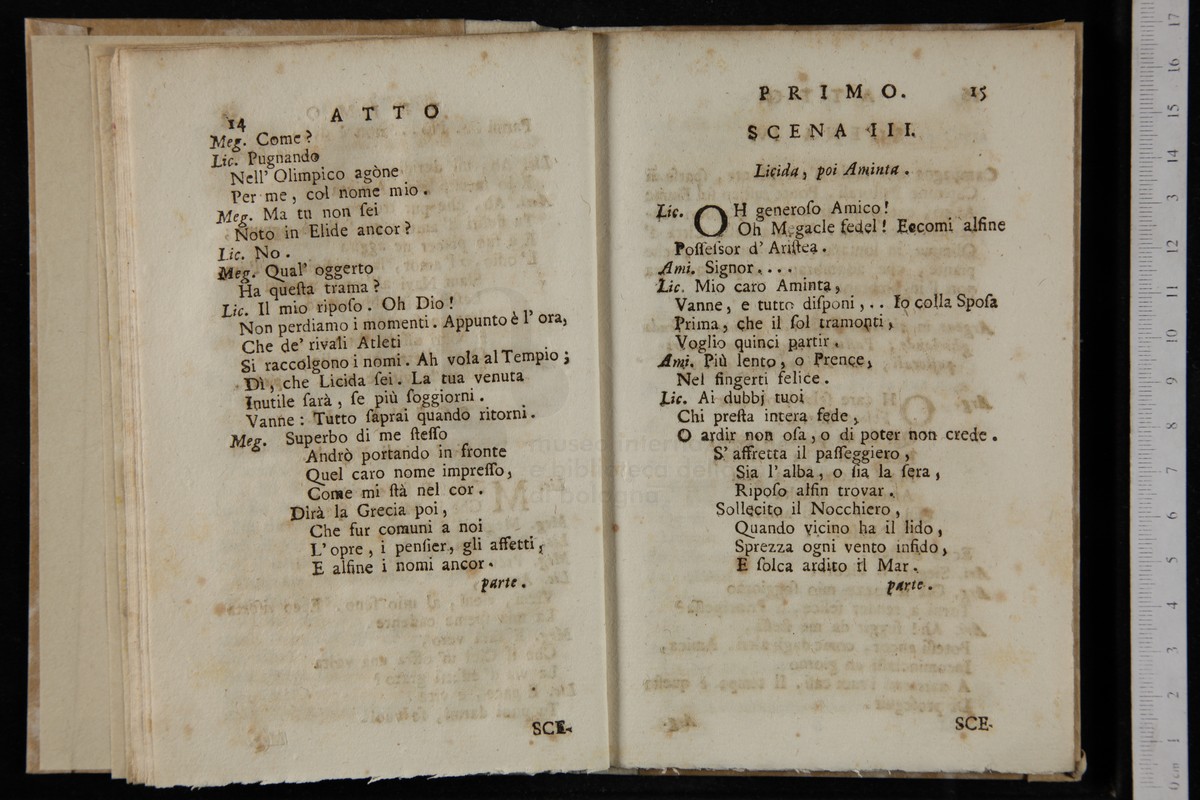 14 ATTO
Meg. Come?
Lic. Pugnando
Nell' Olimpico agòne
Per me, col nome mio.
Meg. Ma tu non ſei
Noto in Elide ancor?
Lic. No.
Meg. Qual' oggerto
Ha queſta trama?
Lic. Il mio ripoſo. Oh Dio!
Non perdiamo i momenti. Appunto è l' ora,
Che de' rivali Atleti
Si raccolgono i nomi. Ah vola al Tempio;
Dì, che Licida ſei. La tua venuta
Inutile ſarà, ſe più ſoggiorni.
Vanne: Tutto ſaprai quando ritorni.
Meg. Superbo di me ſteſſo
Andrò portando in fronte
Quel caro nome impreſſo,
Come mi ſtà nel cor.
Dirà la Grecia poi,
Che fur comuni a noi
L' opre, i penſier, gli affetti,
E alfine i nomi ancor.
parte.
SCE-
PRIMO. 15
SCENA III.
Licida, poi Aminta.
Lic. OH generoſo Amico!
Oh Megacle fedel! Eccomi alfine
Poſſeſsor d' Ariſtea.
Ami. Signor....
Lic. Mio caro Aminta,
Vanne, e tutto diſponi,.. Io colla Spoſa
Prima, che il ſol tramonti,
Voglio quinci partir.
Ami. Più lento, o Prence,
Nel fingerti felice.
Lic. Ai dubbj tuoi
Chi preſta intera fede,
O ardir non oſa, o di poter non crede.
S' affretta il paſſeggiero,
Sia l' alba, o ſia la ſera,
Ripoſo alfin trovar.
Sollecito il Nocchiero,
Quando vicino ha il lido,
Sprezza ogni vento infido,
E ſolca ardito il Mar.
parte.
SCE-